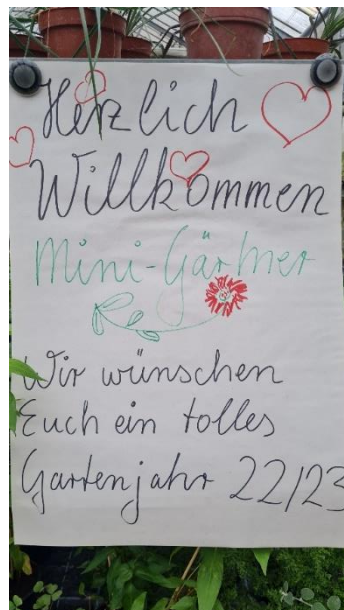 Herzlich
Willkommen
Mini-Gärtner
Wir wünschen
Euch ein tolles
Gartenjahr 22/23